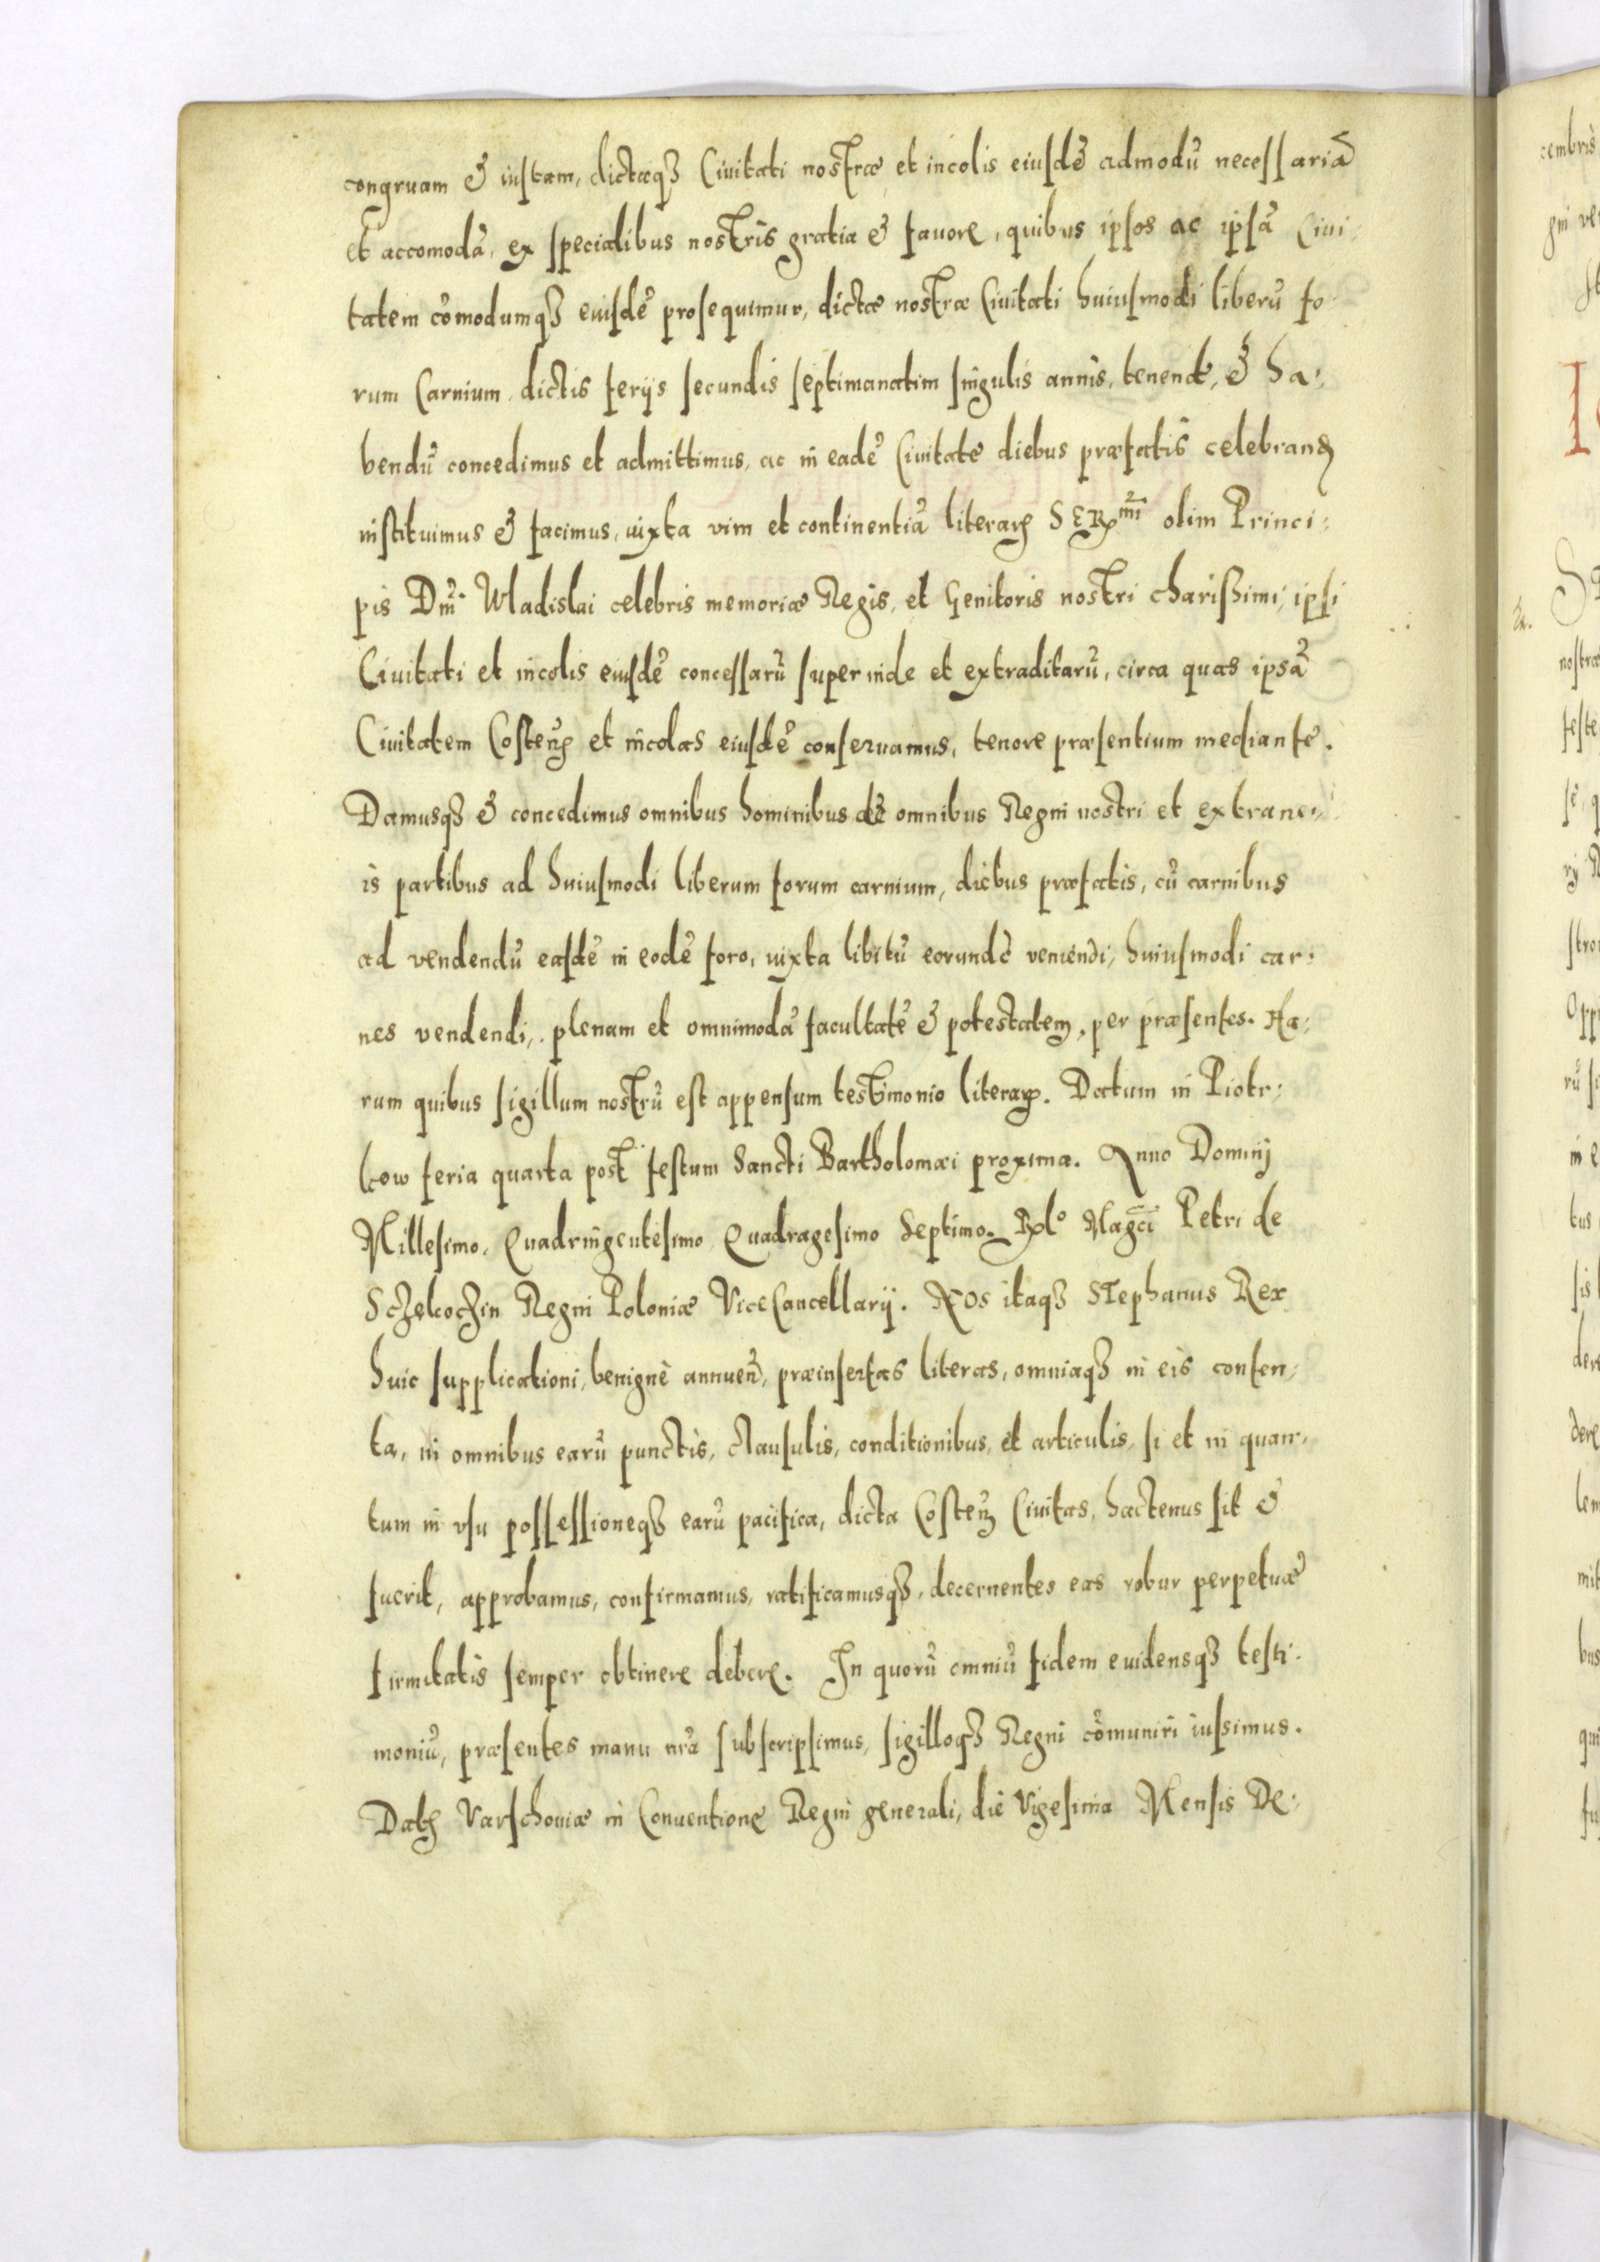 congruam & iustam, dictæq₃ Ciuitati nostræ et incolis eiusdē admodū necessariā
et accomodā, ex specialibus nostris gratia & fauore, quibus ipsos ac ipsā Ciui:
tatem cōmodumq₃ eiusdē prosequimur, dictæ nostræ Ciuitati huiusmodi liberū fo:
rum Carnium dictis ferijs secundis septimanatim singulis annis, tenend, & ha:
bendū concedimus et admittimus, ac in eadē Ciuitate diebus præfatis celebranꝫ
instituimus & facimus, iuxta vim et continentiā literaꝝ SERmi olim Princi:
pis Dni. Wladislai celebris memoriæ Regis, et Genitoris nostri charißimi, ipsi
Ciuitati et incolis eiusdē concessarū superinde et extraditarū, circa quas ipsā
Ciuitatem Costeñ et incolas eiusdē conseruamus, tenore præsentium mediante.
Damusq₃ & concedimus omnibus hominibus de omnibus Regni nostri et extrane:
is partibus ad huiusmodi liberum forum carnium, diebus præfatis, cū carnibus
ad vendendū easdē in eodē foro, iuxta libitū eorundē veniendi, huiusmodi car:
nes vendendi, plenam et omnimodā facultatē & potestatem, per præsentes. Ha:
rum quibus sigillum nostrū est appensum testimonio literaꝝ. Datum in Piotr:
kow feria quarta post festum Sancti Bartholomæi proxima. Anno Dominj
Millesimo, Quadringentesimo Quadragesimo Septimo. Rlo Magci Petri de
Sczekoczin Regni Poloniæ ViceCancellarij. NOS itaq₃ STephanus Rex
huic supplicationi, benignè annueñ, præinsertas literas, omniaq₃ in eis conten:
ta, in omnibus earū punctis, clausulis, conditionibus, et articulis, si et in quan:
tum in vsu possessioneq₃ earū pacifica, dicta Costeñ Ciuitas, hactenus sit &
fuerit, approbamus, confirmamus, ratificamusq₃, decernentes eas robur perpetuæ
firmitatis semper obtinere debere. In quorū omniū fidem euidensq₃ testi:
moniū, præsentes manu nrā subscripsimus, sigilloq₃ Regni cōmuniri iussimus.
Datꝫ Varschouiæ in Conuentione Regni generali, die Vigesima Mensis De: